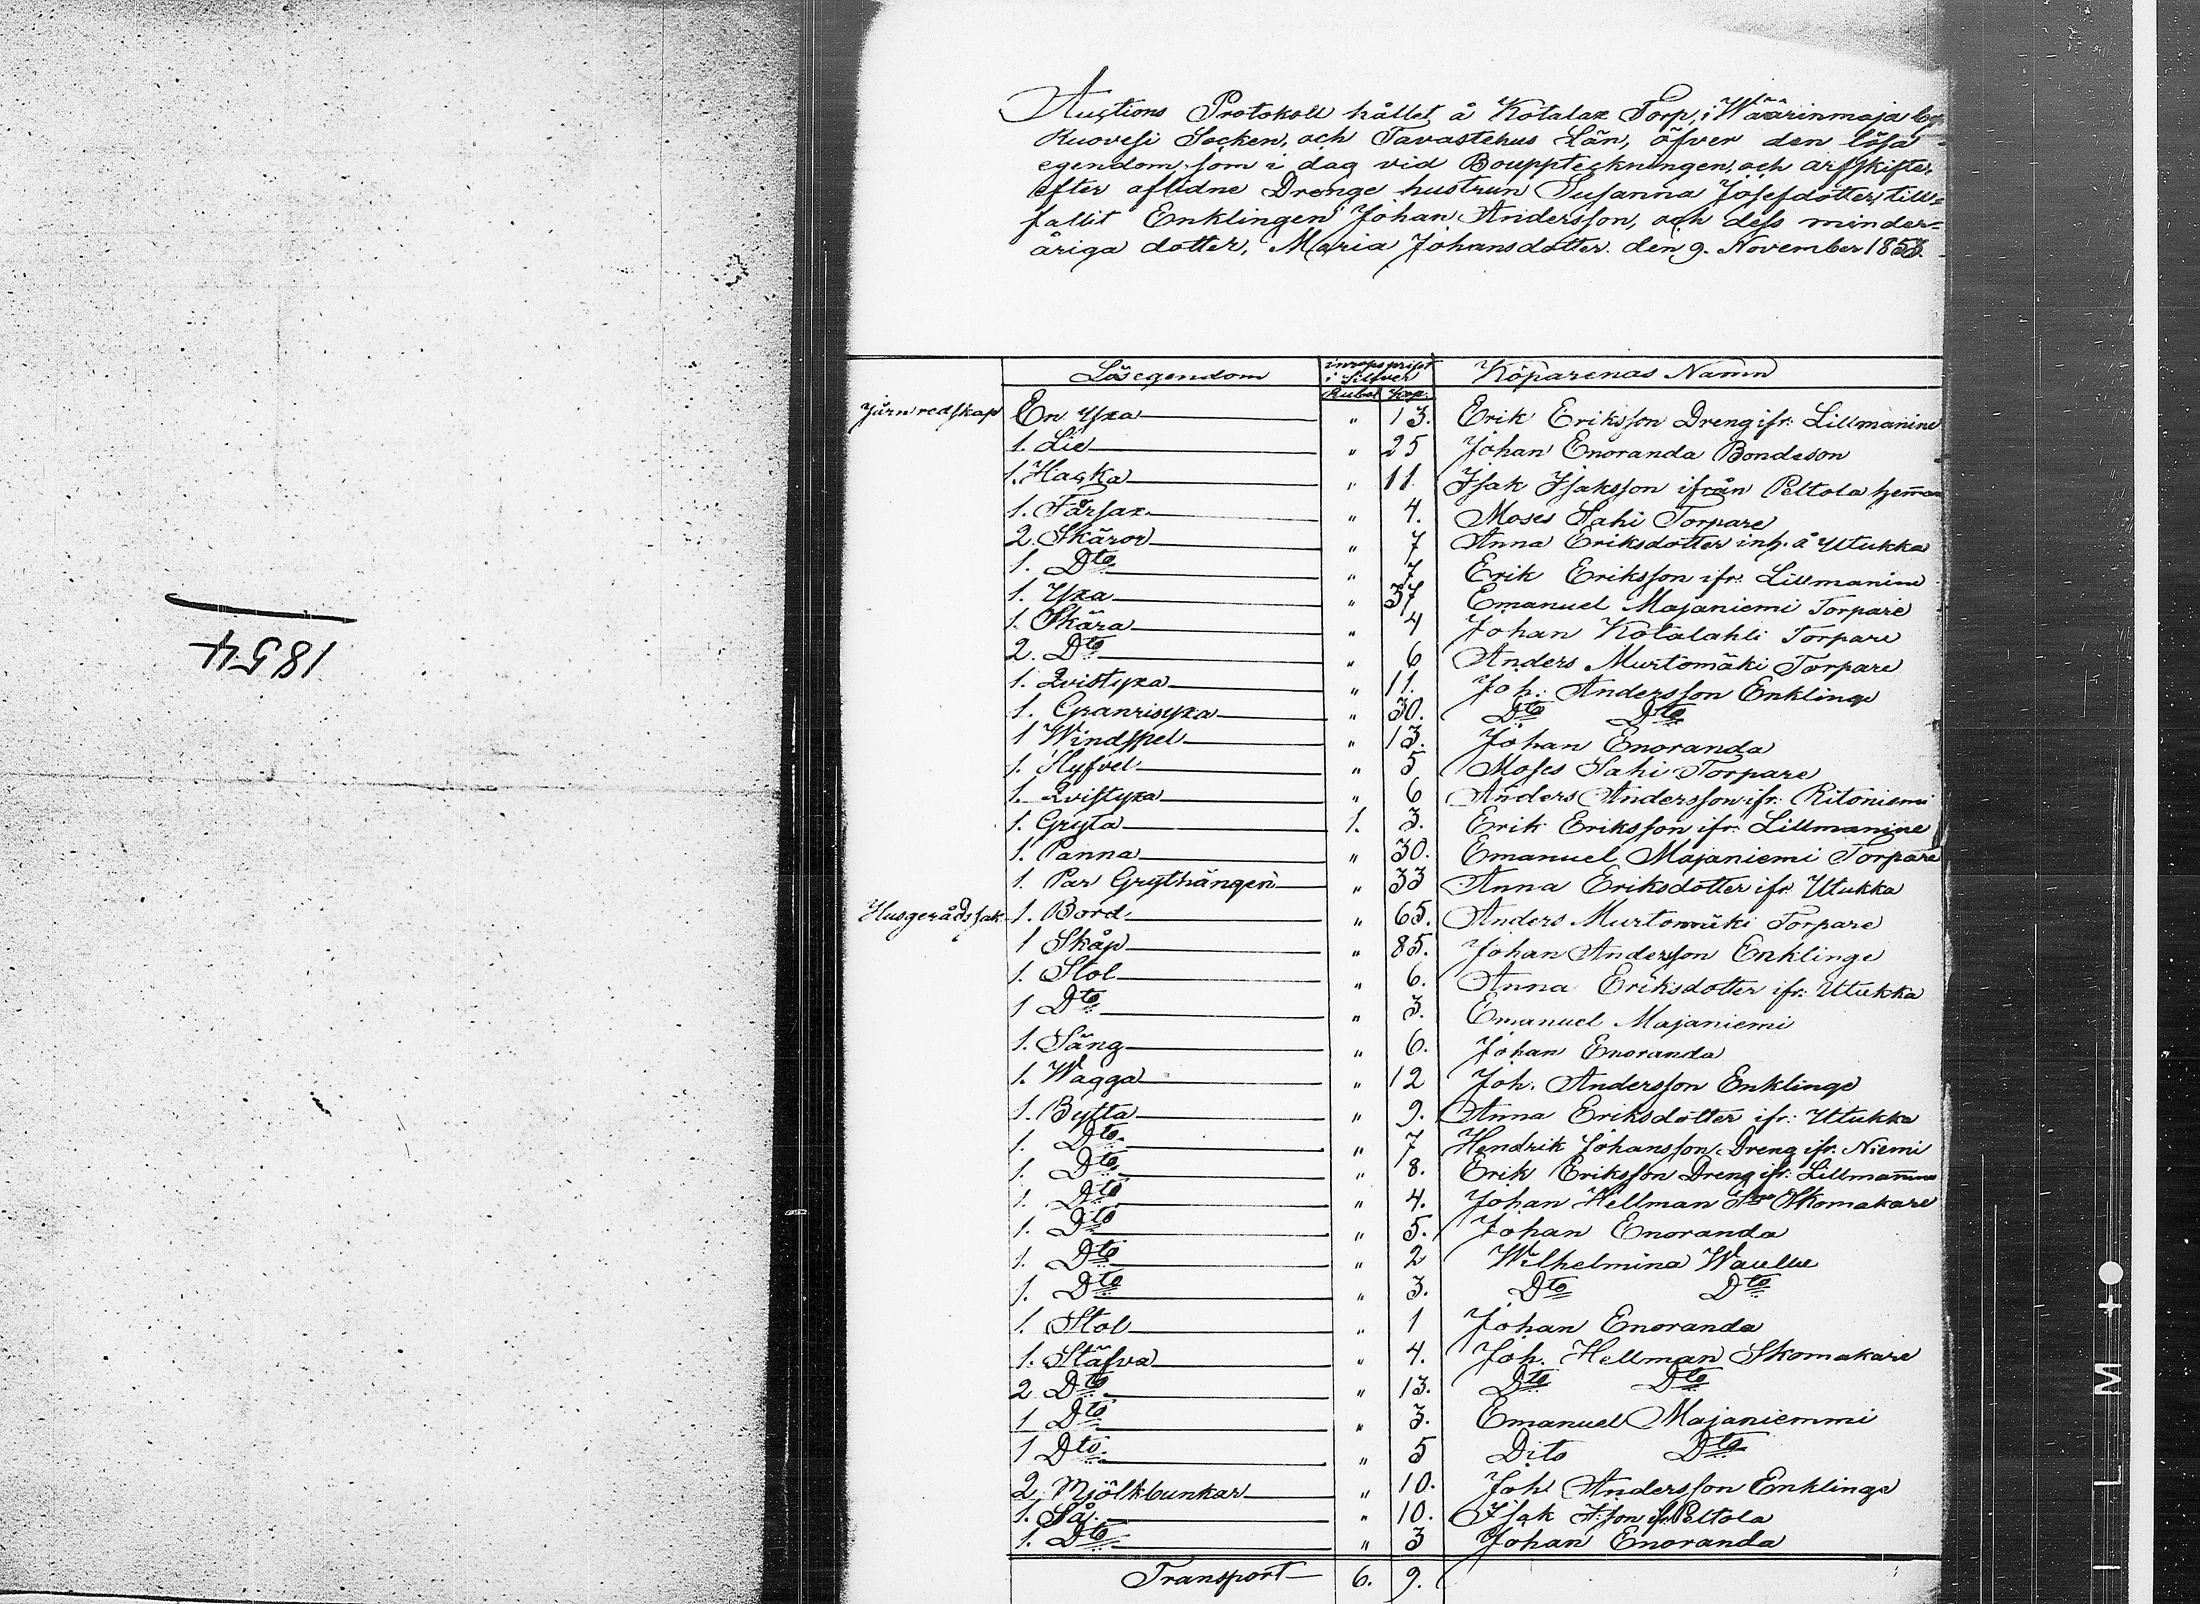 1854
Auctions Protokoll hållet å Kotalax Torp, i Wäärinmaja by
Ruovesi Socken, och Tavastehus Län, öfver den lösa
egendom som i dag vid Bouppteckningen, och arfskiftet
efter aflidne Drenge hustrun Susanna Josefsdotter, till=
fallit Enklingen Johan Andersson, och dess minder=
åriga dotter, Maria Johansdotter. den 9. November 1853.
Lösegendom inropspriset i Silfver Köparenas Namn
Rubel Kop.
Järnredskap En Yxa " 13. Erik Eriksson Dreng ifr: Lillmanine
1. Lie " 25 Johan Enoranda Bondeson
1. Hacka " 11 Isak Isaksson ifrån Peltola heman
1. Fårsax " 4. Moses Sahi Torpare
2. Skäror " 7 Anna Eriksdotter inh. å Utukka
1. Dto " 7 Erik Eriksson ifr: Lillmanine
1. Yxa " 37 Emanuel Majaniemi Torpare
1. Skära " 4 Johan Kotalahti Torpare
2. Dto " 6 Anders Murtomäki Torpare
1. Qvistyxa " 11. Joh: Andersson Enklinge
1. Granrisyxa " 30. Dto Dto
1 Windspel " 13. Johan Enoranda
1. Skyfvel " 5 Moses Sahi Torpare
1. Qvistyxa " 6 Anders Andersson ifr: Ritoniemi
1. Gryta 1. 3. Erik Eriksson ifr: Lillmanine
1. Panna " 30. Emanuel Majaniemi Torpare
1. Par Grythängen " 33 Anna Eriksdotter ifr: Utukka
Husgerådssak 1. Bord " 65. Anders Murtomäki Torpare
1 Skåp " 85. Johan Andersson Enklinge
1. Stol " 6. Anna Eriksdotter ifr: Utukka
1 Dto " 3. Emanuel Majaniemi
1. Säng " 6. Johan Enoranda
1. Wagga " 12 Joh. Andersson Enklinge
1. Bytta " 9. Anna Eriksdotter ifr: Utukka
1. Dto " 7 Hendrik Johansson Dreng ifr: Niemi
1. Dto " 8. Erik Eriksson Dreng ifr: Lillmanine
1. Dto " 4. Johan Hellman Skomakare
1. Dto " 5. Johan Enoranda
1. Dto " 2 Wilhelmina
1. Dto " 3. Dto Dto
1. Stol " 1 Johan Enoranda
1. Stäfva " 4. Joh. Hellman Skomakare
2 Dto " 13. Dto Dto
1 Dto " 3. Emanuel Majaniemmi
1 Dto. " 5 Dito Dto
2. Mjölkbunkar " 10. Joh Andersson Enklinge
1. Så " 10. Isak I:son ifr Peltola
1. Dto " 3 Johan Enoranda
Transport 6. 9.
FILM